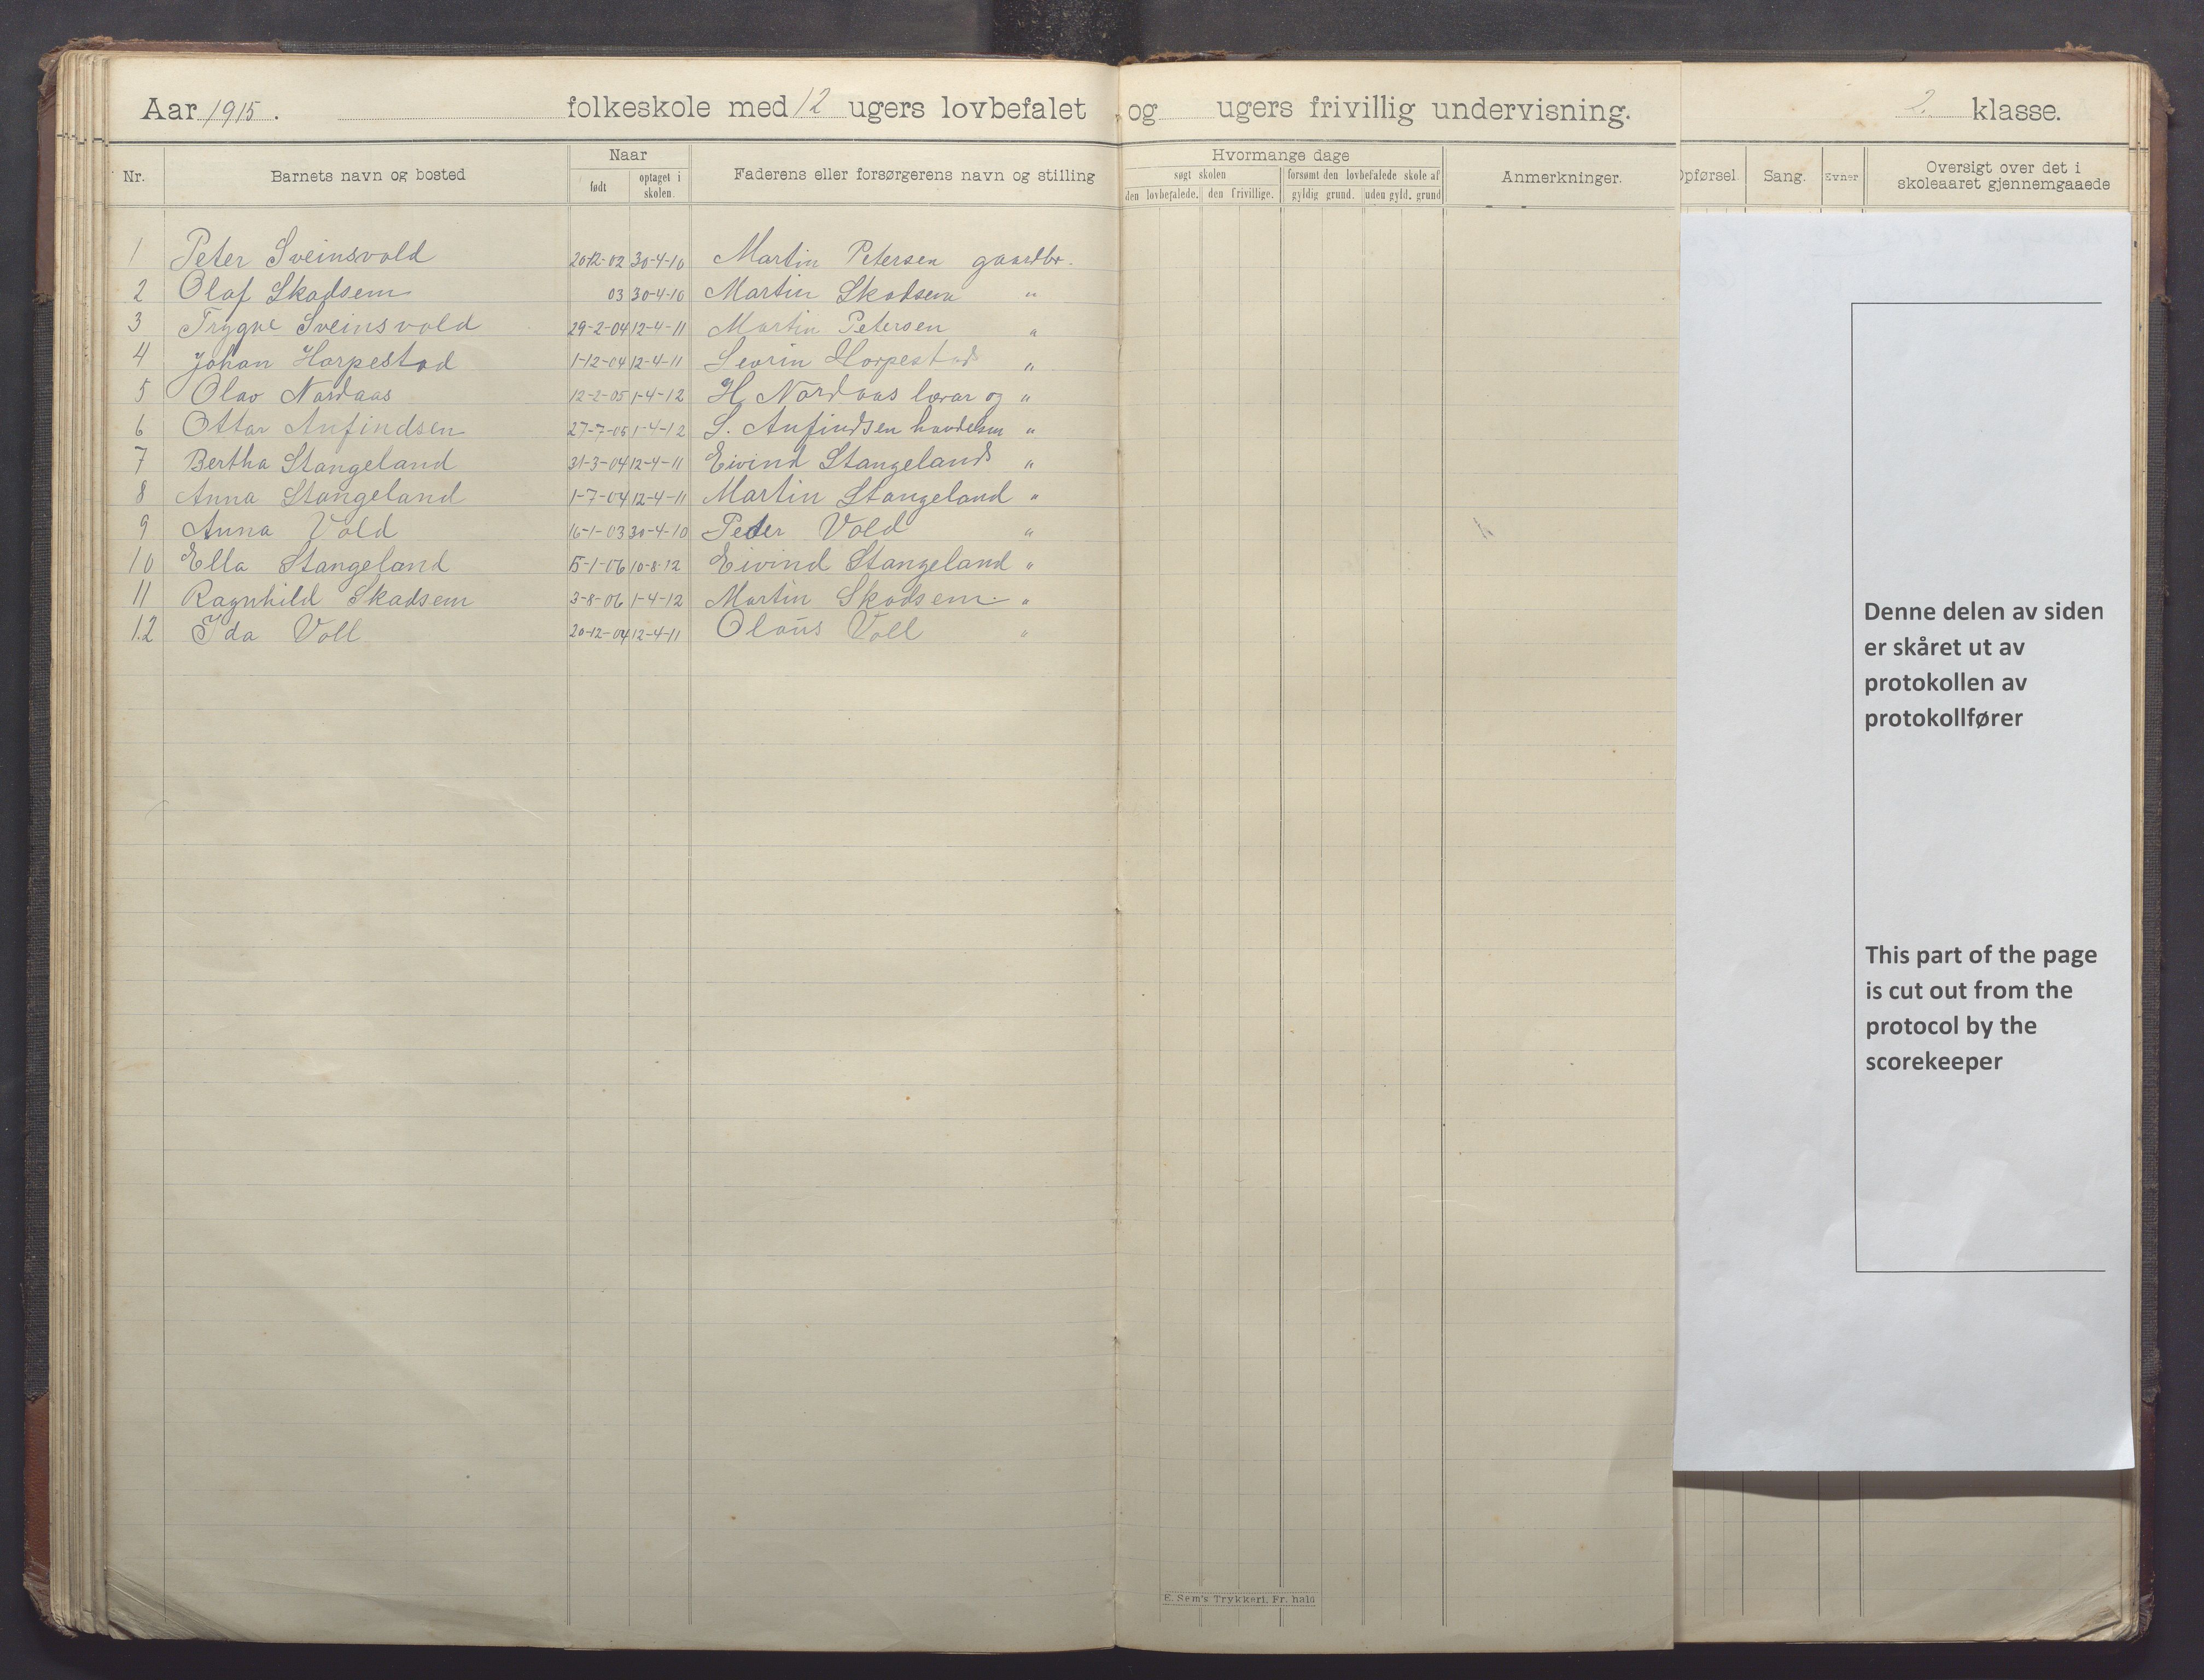 Aar 1915. folkeskole med 12 ugers lovbefalet og ugers frivillig undervisning. 2. klasse.
Nr. Barnets navn og bosted Naar født optaget i skolen. Faderens eller forsørgerens navn og stilling Hvormange dage søgt skolen den lovbefalede. den frivillige. forsømt den lovbefalede skole af gyldig grund. uden gyld. grund Anmerkninger. Opførsel. Sang. Evner Oversigt over det i skoleaaret gjennemgaaede
1 Peter Sveinsvold 20-12-02 30-4-10 Martin Petersen gaardbr.
2 Olaf Skadsem 03 30-4-10 Martin Skadsem "
3 Trygve Sveinsvold 29-2-04 12-4-11 Martin Petersen "
4 Johan Harpestad 1-12-04 12-4-11 Sevrin Harpestad "
5 Olav Nordaas 12-2-05 1-4-12 H. Nordaas lærar og "
6 Ottar Anfindsen 27-7-05 1-4-12 S. Anfindsen handelsm "
7 Bertha Stangeland 31-3-04 12-4-11 Eivind Stangeland "
8 Anna Stangeland 1-7-04 12-4-11 Martin Stangeland "
9 Anna Vold 16-1-03 30-4-10 Peder Vold "
10 Ella Stangeland 5-1-06 10-8-12 Eivind Stangeland "
11 Ragnhild Skadsem 3-8-06 1-4-12 Martin Skadsem "
12 Ida Voll 20-12-04 12-4-11 Olaus Voll "
Denne delen av siden
er skåret ut av
protokollen av
protokollfører
This part of the page
is cut out from the
protocol by the
scorekeeper
E. Sem's Trykkeri, Fr. hald